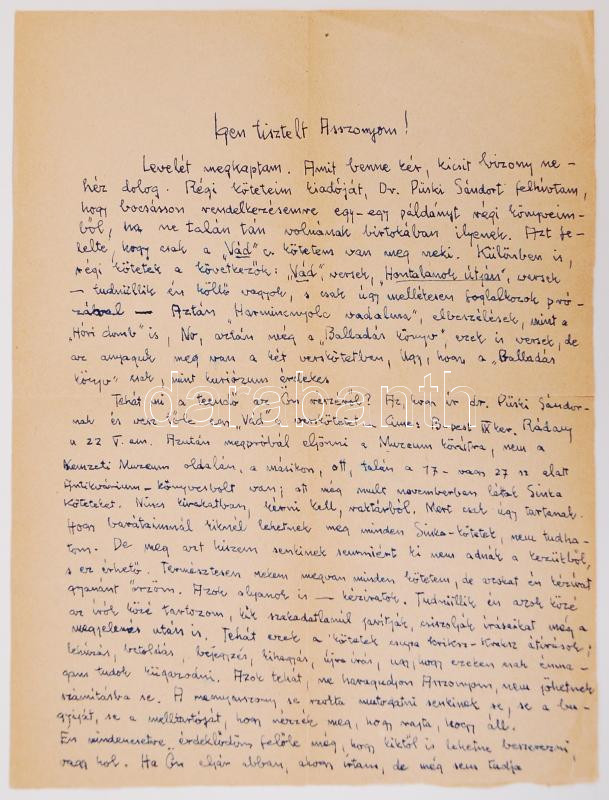 Igen tisztelt Asszonyom!
Levelét megkaptam. Amit benne kér, kicsit bizony ne-
héz dolog. Régi köteteim kiadóját, Dr. Püski Sándort felhívtam,
hogy bocsásson rendelkezésemre egy-egy példányt régi könyveim-
ből, ha ne talán tán volnának birtokában ilyenek. Azt fe-
lelte, hogy csak a „Vád" c. kötetem van meg neki. Különben is,
régi kötetek a következők: „Vád" versek, „Hontalanok útján", versek
— tudniillik én költő vagyok, s csak úgy mellétesen foglalkozok pró-
zával — Aztán Harmincnyolc vadalma", elbeszélések, mint a
„Hóri domb" is, No, aztán még a „Balladás könyv", ezek is versek, de
az anyaguk meg van a két verskötetben, úgy, hogy a „Balladás
könyv" csak mint kuriózum érdekes
darabanth
Tehát mi a teendő az Ön részéről? Az, hogy ír dr. Püski Sándor-
nak és „Vád" c. verskötetet. Címe: Bpest IX ker. Ráday
u 22 V. em. Azután megpróbál eljönni a Muzeum körútra, nem a
Nemzeti Muzeum oldalán, a másikon, ott, talán a 17- vagy 27 sz alatt
Antikvárium-könyvesbolt van; ott még mult novemberben láttak Sinka
Köteteket. Nincs kirakatban, kérni kell, raktárból. Mert csak úgy tartanak.
Hogy barátaimnál kiknél lehetnek meg minden Sinka-kötetek, nem tudha-
tom. De meg azt hiszem senkinek semmiért ki nem adnák a kezükből,
s ez érthető. Természetesen nekem megvan minden kötetem, de azokat én kézirat
gyanánt őrzöm. Azok olyanok is — kéziratok. Tudniillik én azok közé
az írók közé tartozom, kik szakadatlanul javítják, csiszolják írásaikat még a
megjelenés után is. Tehát ezek a kötetek csupa krikszkraksz átírások;
lehúzás, betoldás, bejegyzés, kihagyás, újra írás, úgy, hogy ezeken csak énma-
gam tudok kiigazodni. Azok tehát, ne haragudjon Asszonyom, nem jöhetnek
számításba se. A menyasszony se szokta mutogatni senkinek se, se a bu-
gyiját, se a melltartóját, hogy nézzék meg, hogy rajta, hogy áll.
Én mindenesetre érdeklődöm felőle még, hogy kiktől is lehetne beszerezni,
vagy hol. Ha Ön eljár abban, ahogy írtam, de még sem tudja